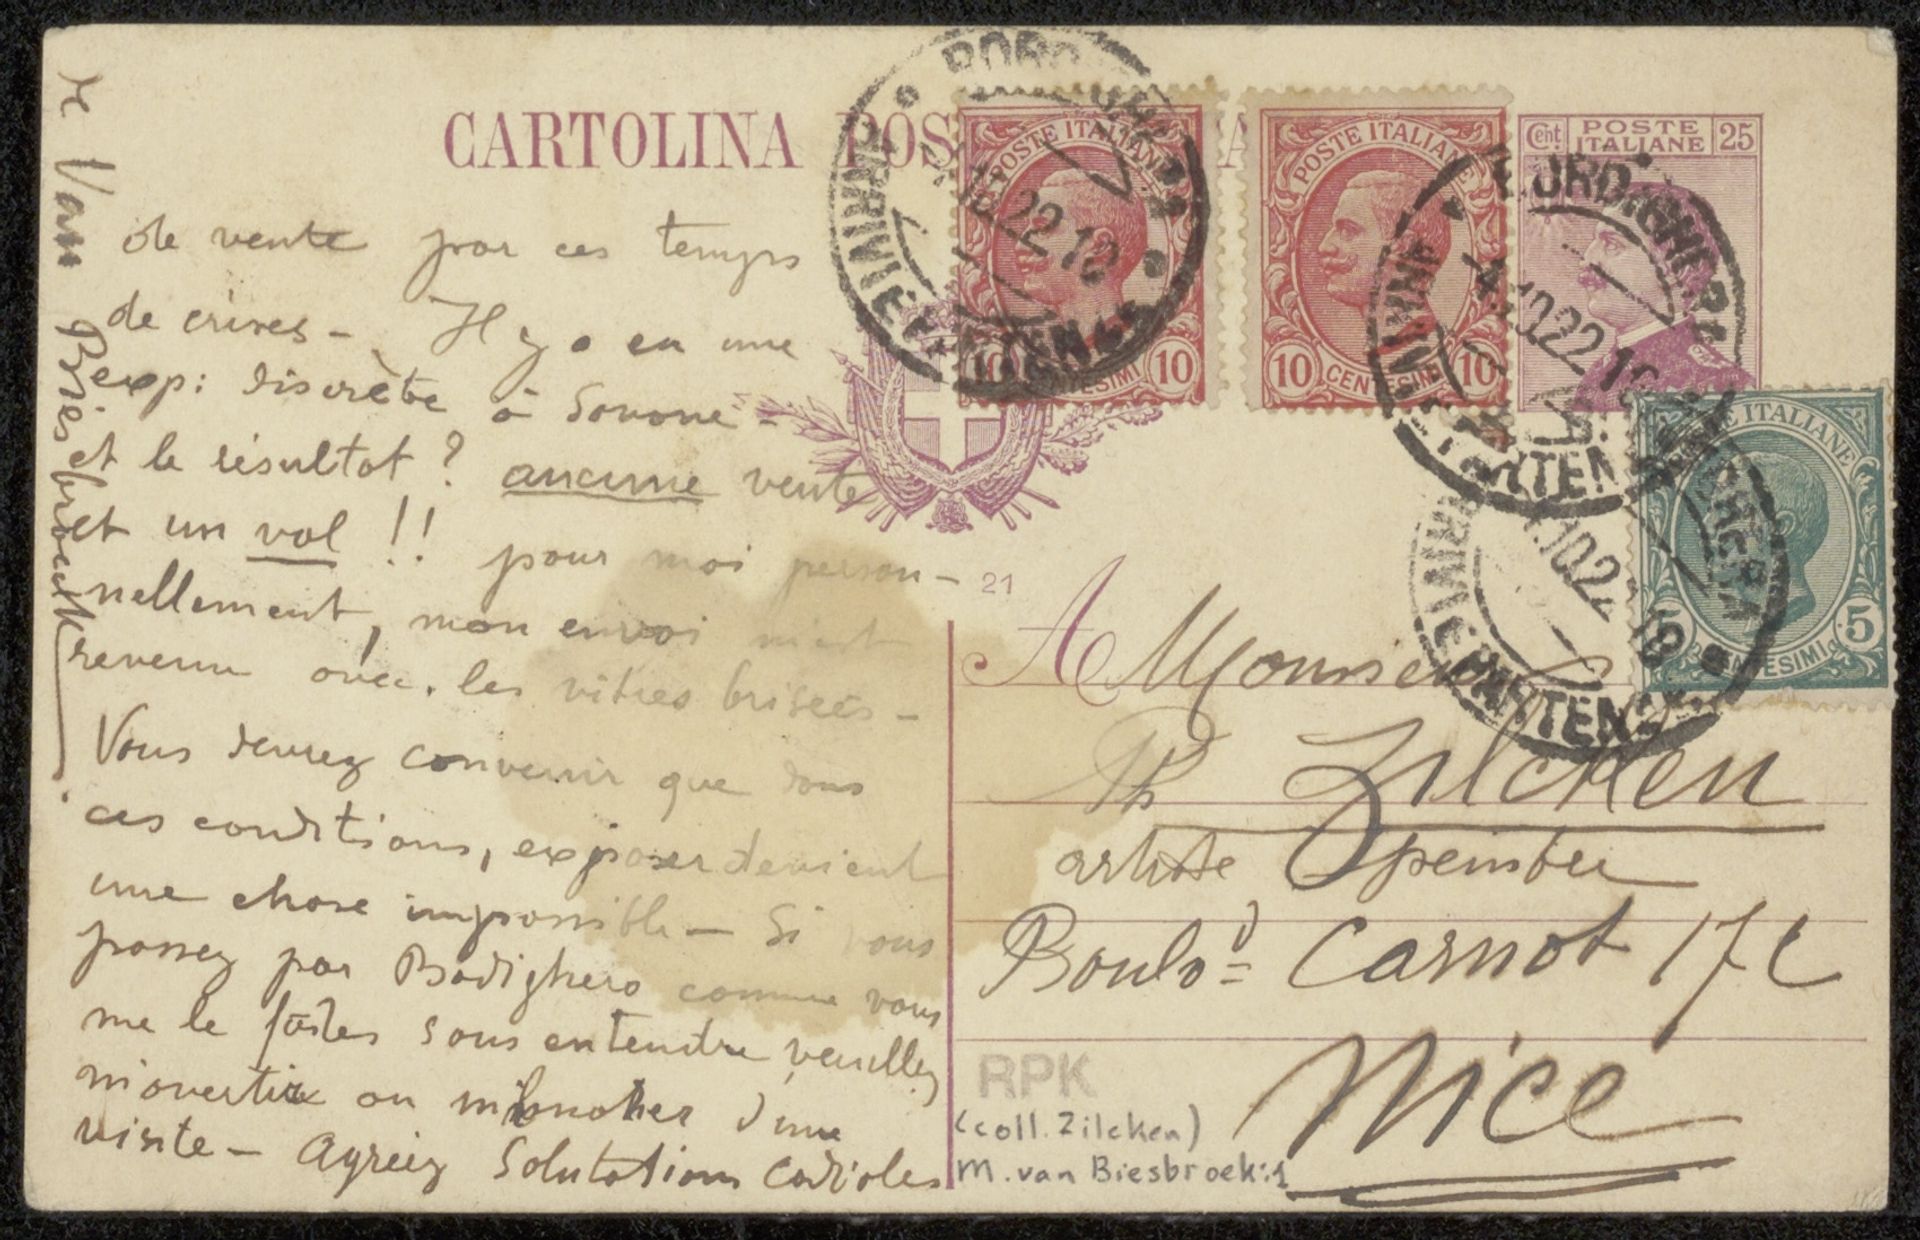 CARTOLINA POS
de vente par ces temps
de crises - Il y a eu une
exp: discrète à Savone -
et le résultat? aucune vente
et un vol!! pour moi person-
nellement, mon envoi m'est
revenu avec les vitres brisées -
Vous devrez convenir que dans
ces conditions, exposer devient
une chose impossible - Si vous
passez par Bordighera comme vous
me le faites sous entendre, veuillez
m'avertir ou m'honorer d'une
visite - Agréez Salutations cordiales
de Van Biesbroeck.
POSTE ITALIANE
10 CENTESIMI 10
POSTE ITALIANE
10 CENTESIMI 10
Cent. POSTE ITALIANE 25
POSTE ITALIANE
5 CENTESIMI 5
BORDIGHERA
ARRIVI E PARTENZE
4.10.22.18
BORDIGHERA
ARRIVI E PARTENZE
4.10.22.18
ARRIVI E PARTENZE
4.10.22.18
21
A Monsieur
Ph Zilcken
artiste peintre
Boulvd = Carnot 17 C
Nice
RPK
(coll. Zilcken)
M. van Biesbroek:1